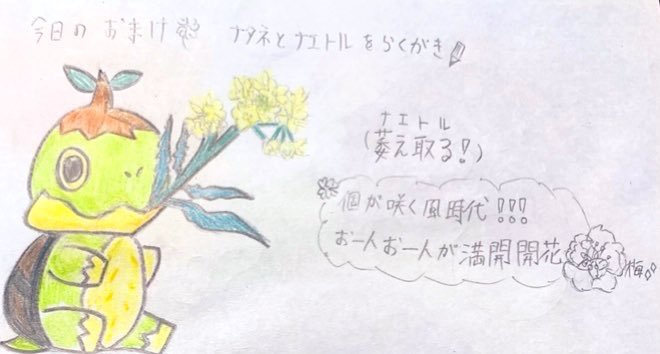 今日の おまけ ナタネとナエトルをらくがき
ナエトル
(萎え取る!)
個が咲く風時代!!!
お一人お一人が満開開花
梅